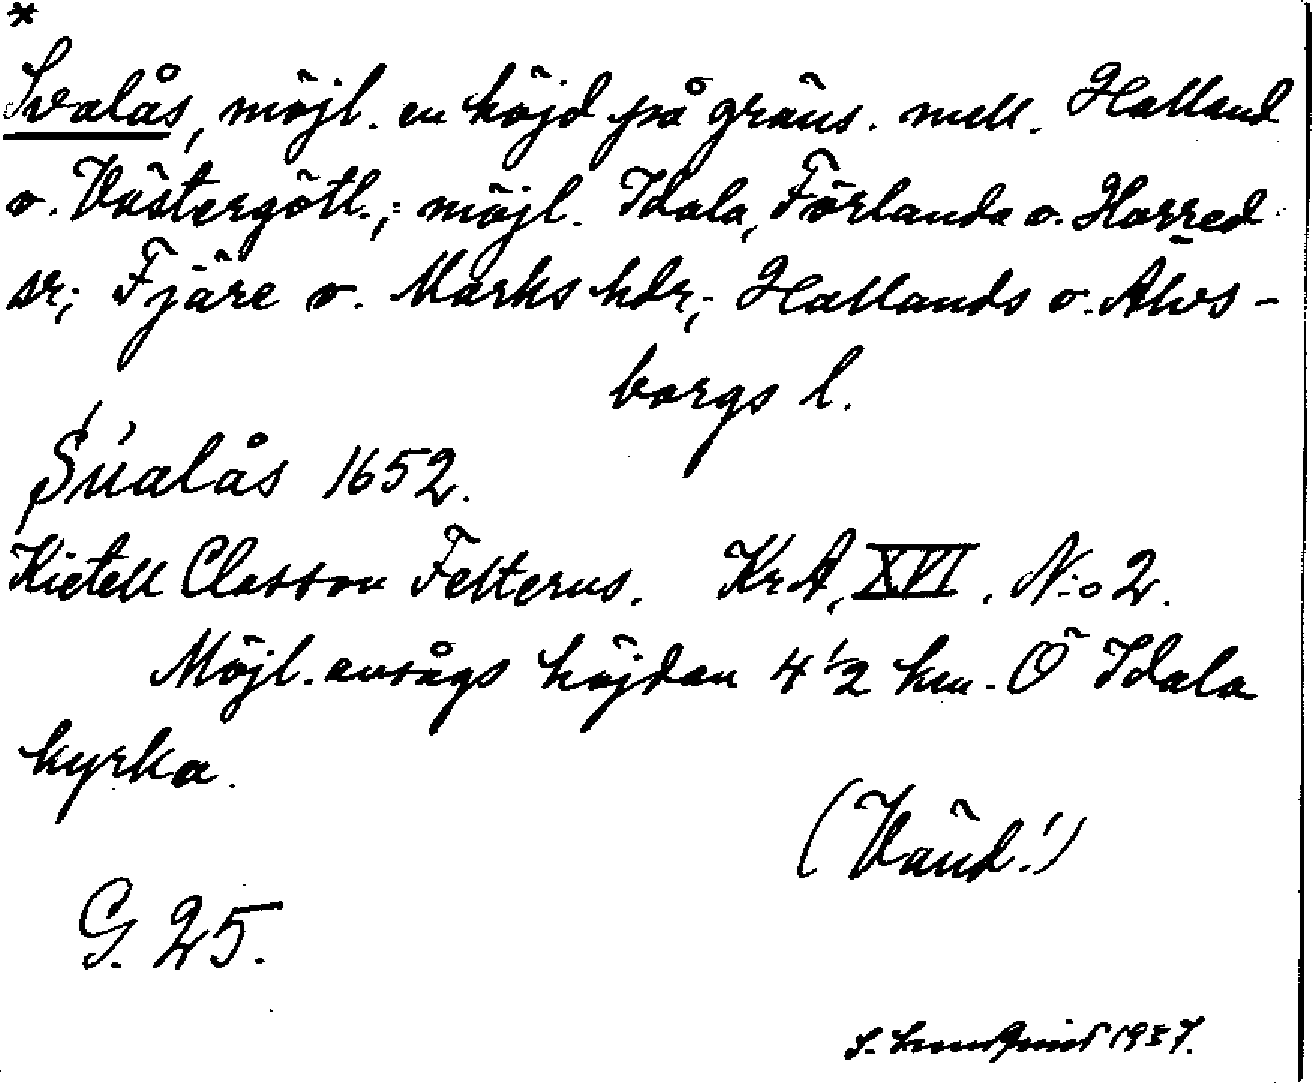 *
Svalås, möjl. en höjd på gräns. mell. Halland
o. Västergötl.; möjl. Idala, Förlanda o. Horred
sr; Fjäre o. Marks hdr; Hallands o. Älvs-
borgs l.
Súalås 1652.
Kietell Classon Felterus. KrA, XVI. N:o 2.
Möjl. avsågs höjden 4 1/2 km. Ö Idala
kyrka.
(Vänd!)
G. 25.
S. Lundqvist 1937.